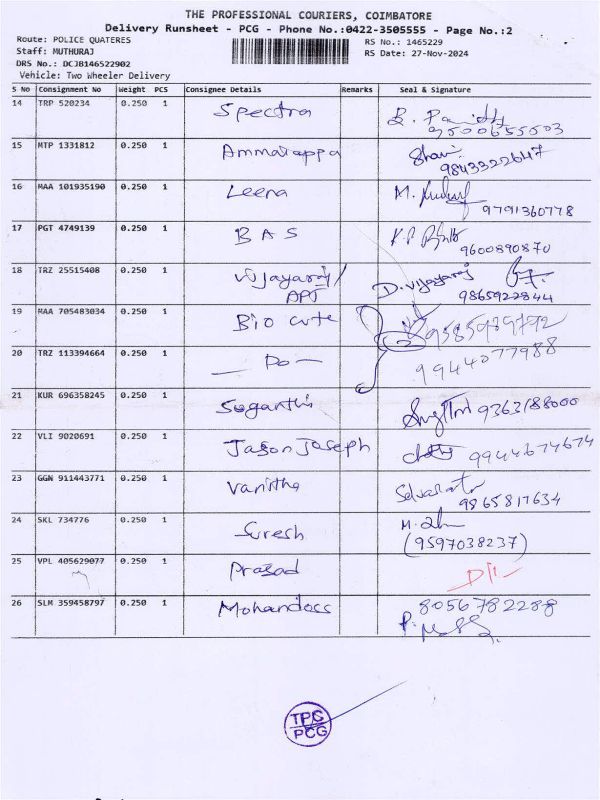 THE PROFESSIONAL COURIERS, COIMBATORE
Delivery Runsheet - PCG - Phone No.:0422-3505555 - Page No.:2
Route: POLICE QUATERES RS No.: 1465229
Staff: MUTHURAJ RS Date: 27-Nov-2024
DRS No.: DCJB146522902
Vehicle: Two Wheeler Delivery
S No Consignment No Weight PCS Consignee Details Remarks Seal & Signature
14 TRP 520234 0.250 1 Spectra
9500655503
15 MTP 1331812 0.250 1 Ammaiappa
9843322647
16 MAA 101935190 0.250 1 Leena M.
9791360778
17 PGT 4749139 0.250 1 BAS
9600890870
18 TRZ 25515408 0.250 1 Vijayaraj/ D. Vijayaraj
APJ 9865922844
19 MAA 705483034 0.250 1 Bio cute
20 TRZ 113394664 0.250 1 — Do — 9944077988
21 KUR 696358245 0.250 1 Suganthi 9363188000
22 VLI 9020691 0.250 1 Jason Joseph 9944674674
23 GGN 911443771 0.250 1 Vanitha
9865817634
24 SKL 734776 0.250 1 Suresh M.
(9597038237)
25 VPL 405629077 0.250 1 Prasad
26 SLM 359458797 0.250 1 Mohandoss 8056782288
TPC
PCG